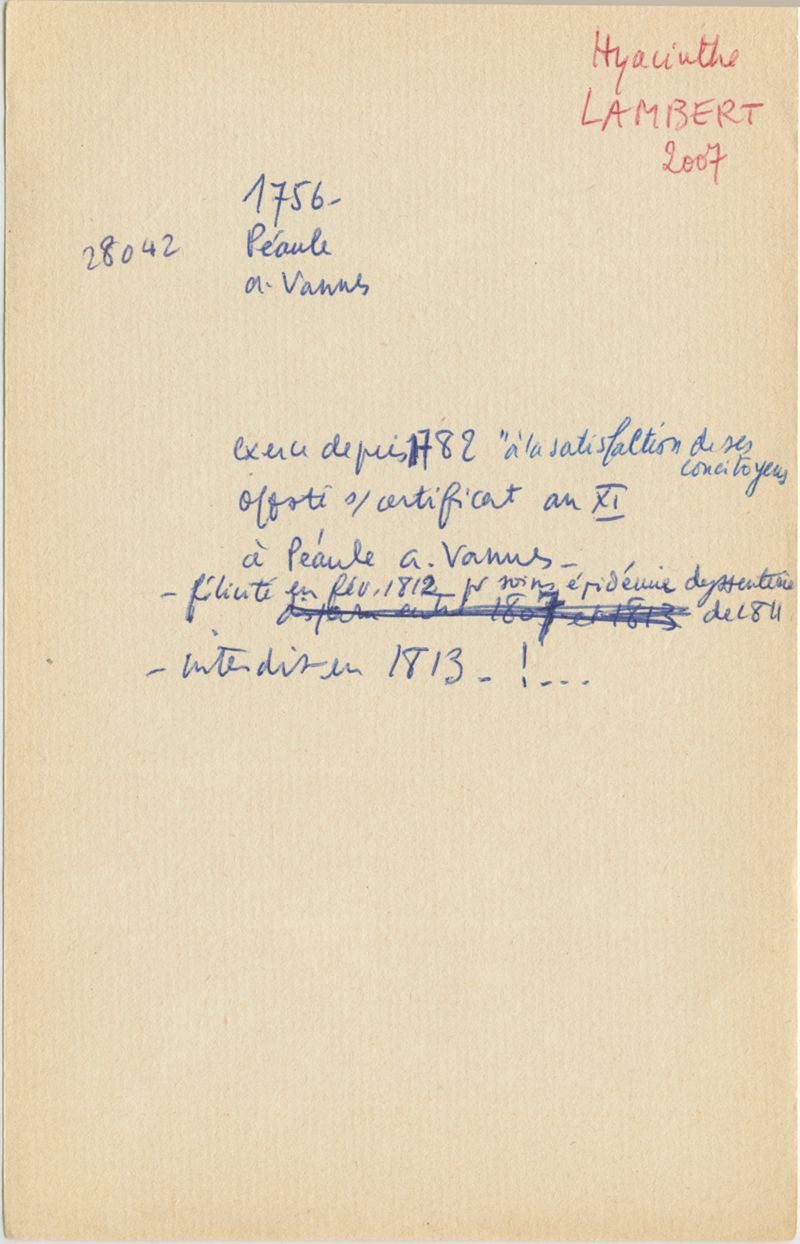 Hyacinthe
LAMBERT
2007
1756-
28042 Péaule
a. Vannes
exerce depuis 1782 "à la satisfaction de ses
concitoyens
s/certificat an XI
à Péaule a. Vannes -
- félicité en fév. 1812 pr soins épidémie dyssenterie
1807 et 1813 de 1811
- interdit en 1813 - ! - ...